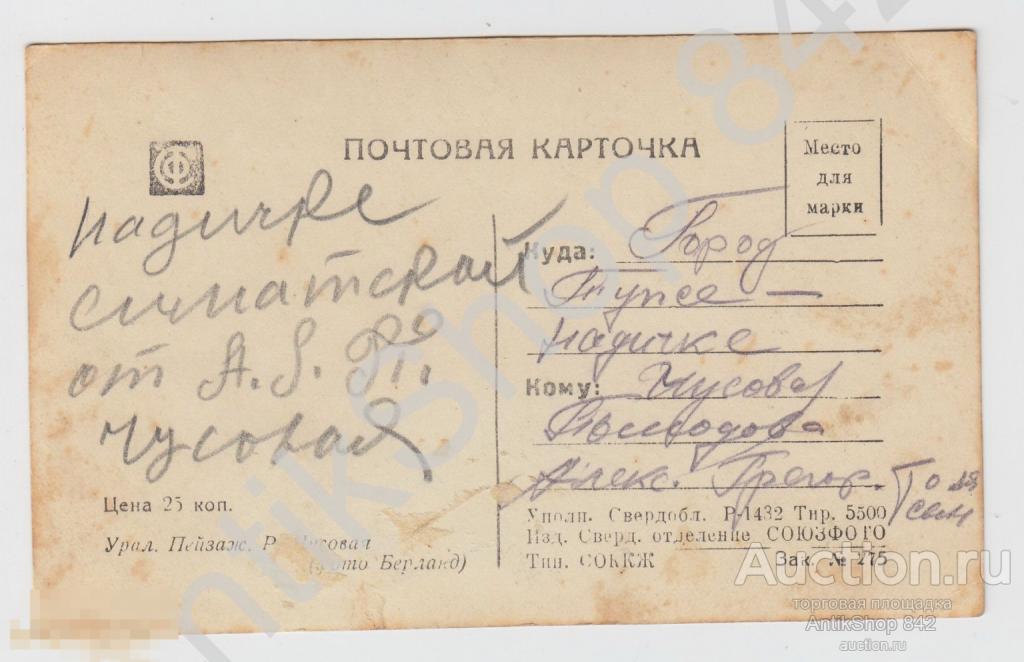 ПОЧТОВАЯ КАРТОЧКА
Место
для
марки
Надичке
от А.
Чусовая
Цена 25 коп.
Урал. Пейзаж. Р. Чусовая
(Фото Берланд)
Куда: Город
Надичке
Кому: Чусовая
Алекс. Григор.
Уполн. Свердобл. Р-1432 Тир. 5500
Изд. Сверд. отделение СОЮЗФОТО
Тип. СОККЖ Зак. № 275
AntikShop 842
Auction.ru
торговая площадка
AntikShop 842
auction.ru